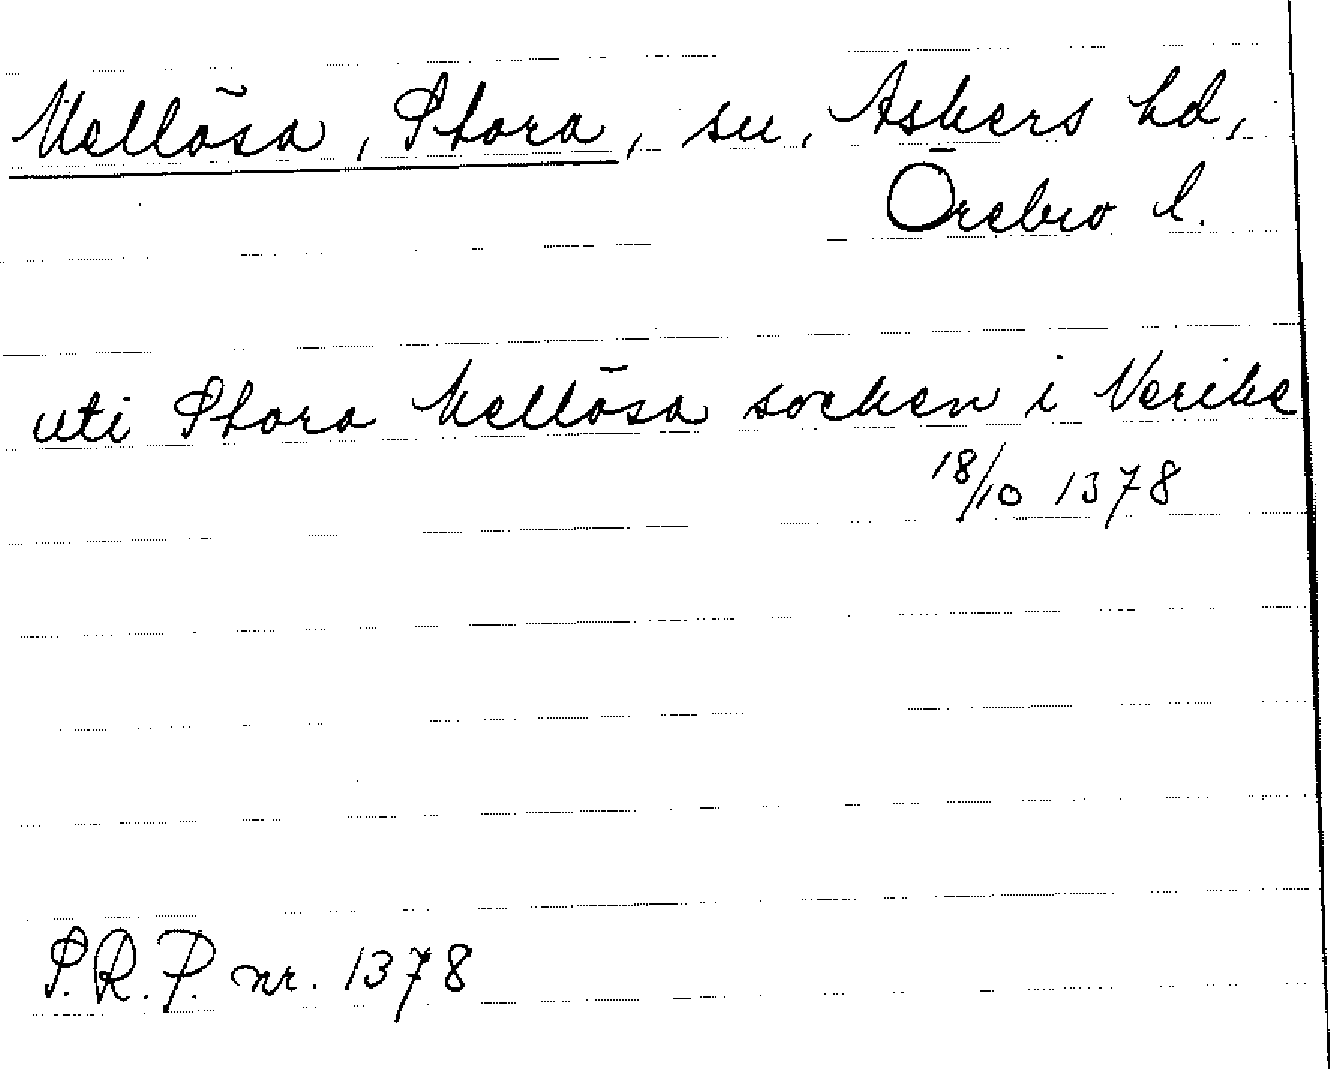 Mellösa, Stora, sn, Askers hd,
Örebro l.
uti Stora Mellösa socken i Nerike
18/10 1378
S.R.P. nr. 1378